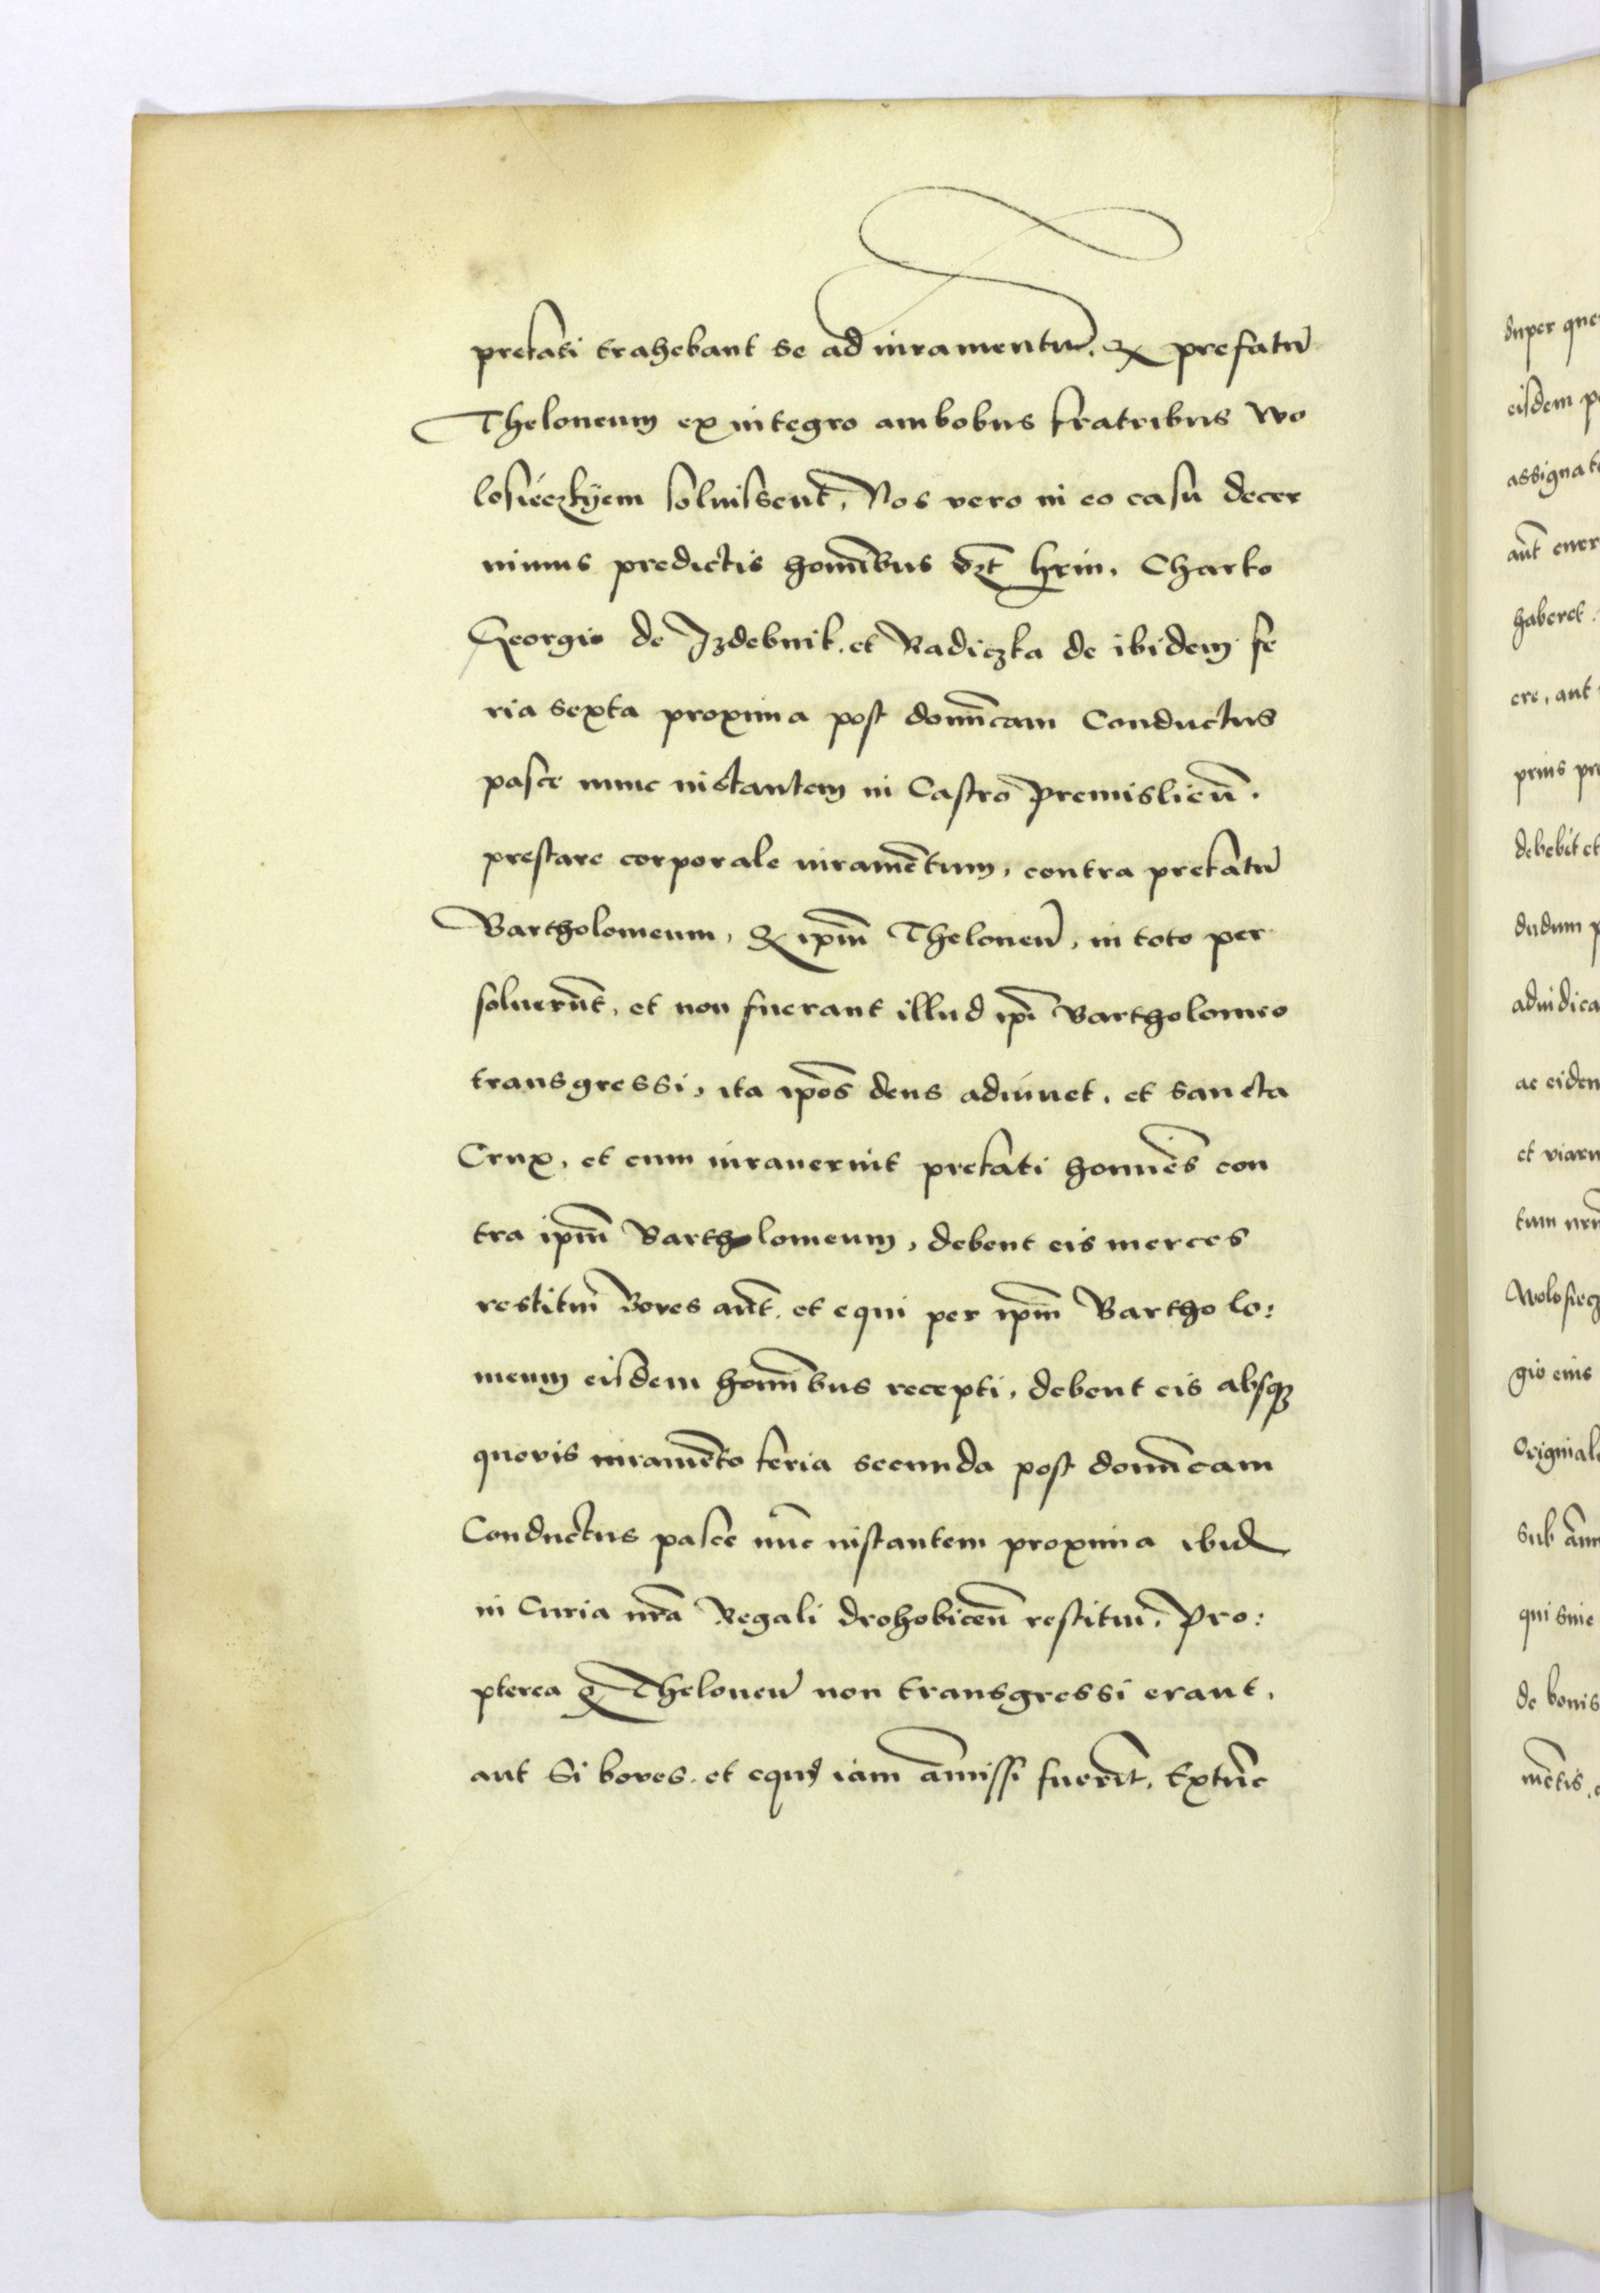 prefati trahebant se ad iuramentū. qͥ prefatū
Theloneum ex integro ambobus fratribus Wo
losieczkyem soluissent, Nos vero in eo casu decer
nimus predictis hom̄ibus vꝫt hrin. Charko
Georgio de Izdebnik. et Radiczka de ibidem fe
ria sexta proxima post domīcam Conductus
pasce nunc instantem in Castro Premislień.
prestare corporale iuramētum, contra prefatū
Bartholomeum, qͥ ip̄m Theloneū, in toto per
soluerūt, et non fuerant illud ip̄i Bartholomeo
transgressi, ita ip̄os deus adiuuet, et sancta
Crux, et cum iurauerint prefati homīes con
tra ip̄m Bartholomeum, debent eis merces
restitui Boves aūt. et equi per ip̄m Bartholo:
meum eisdem hom̄ibus recepti, debent eis absqꝫ
quovis iuramēto feria secunda post domīcam
Conductus pasce nūc instantem proxima ibid
in Curia nr̄a Regali drohobiceń restitui, Pro:
pterea qͥ Theloneū non transgressi erant,
aut si boves. et equi iam amissi fuerīt, Extūc
super que
eisdem p
assignat
aūt ever
haberet.
ere, aut
prius pre
debebit et
dudum p
adiudica
ac eidem
et viaru
tum nr̄
Wolosiecz
gio eius
Original
sub ann
qui sine
de bonis
mētis,